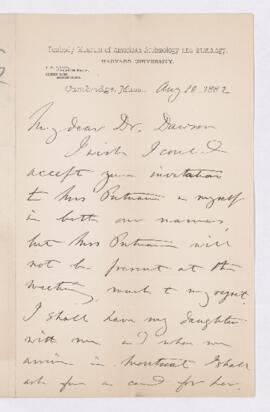 Peabody Museum of American Archæology and Ethnology,
HARVARD UNIVERSITY.
Cambridge, Mass. Aug 10 1882
My dear Dr. Dawson
I wish I could
accept your invitation
to Mrs Putnam & myself
in both our names,
but Mrs Putnam will
not be present at the
meeting, much to my regret.
I shall have my daughter
with me and when we
arrive in Montreal I shall
ask for a card for her.